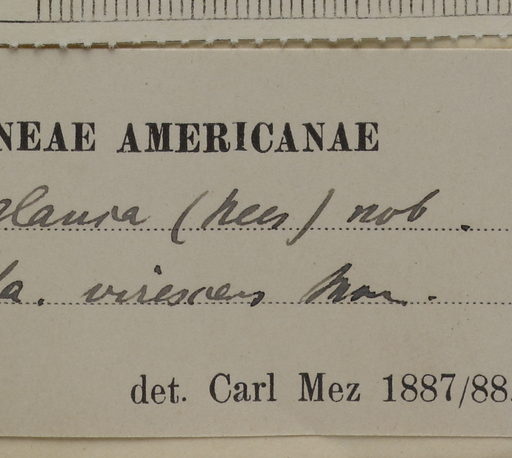 NEAE AMERICANAE
glauca (Nees) nob.
virescens
det. Carl Mez 1887/88.